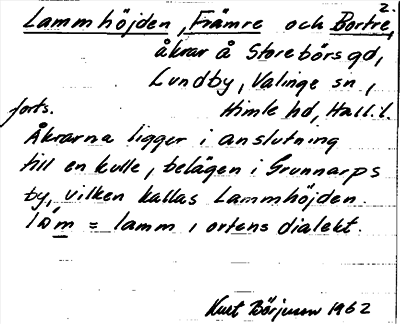 2.
Lammhöjden, Främre och Bortre,
åkrar å Storebörs gd,
Lundby, Valinge sn,
forts. Himle hd, Hall. l.
Åkrarna ligger i anslutning
till en kulle, belägen i Grunnarps
by, vilken kallas Lammhöjden.
låm = lamm i ortens dialekt.
Kurt Börjesson 1962